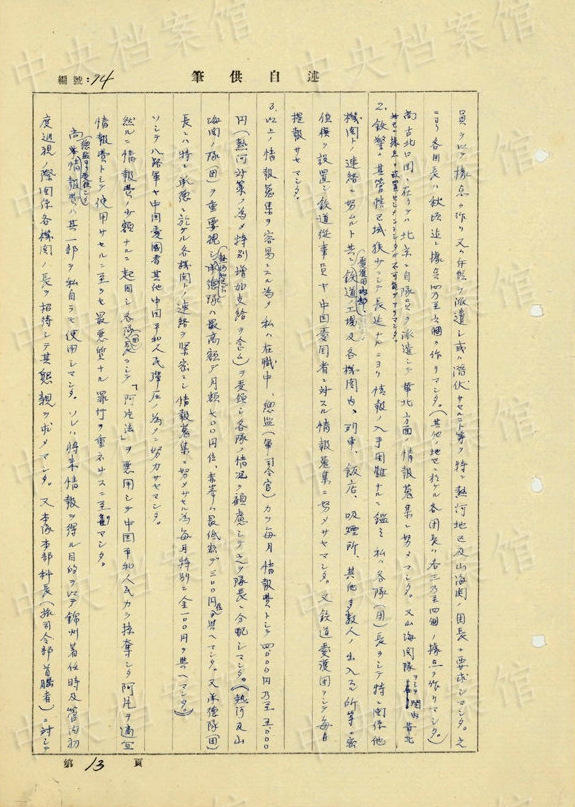 中央档案馆
編號:74
述自供筆
員ヲ以テ據点ヲ作リ又ハ存態ヲ派遣シ或ハ潜伏サセルコト等ヲ特ニ熱河地區及山海関ノ團長ニ要求シマシタ。之
ニヨリ各団長ハ秋頃迄ニ據点四乃至五個ヲ作リマシタ。(其他ノ地ニ於ケル各団長ハ各三乃至四個ノ據点ヲ作リマシタ)
尚古北口團ニ在リテハ北京ニ自隊員ヲ派遣シテ華北方面ノ情報蒐集ニ努メマシタ。又山海関隊
2.鉄警ハ其管轄区域狭少ニシテ長延ナルニヨリ情報ノ入手困難ナルニ鑑ミ私ハ各隊(団)長ヲシテ特ニ関係他
機関トノ連絡ニ努ムルト共ニ鉄道工場及各機関内、列車、飯店、吸煙所、其他多数人ノ出入スル所等ニ密
(愛護団内部)
偵網ヲ設置シ鉄道従事員ヤ中国愛国者ニ対スル情報蒐集ニ努メサセマシタ。又鉄道愛護団ヲシテ毎日
提報サセマシタ。
3.以上ノ情報蒐集ヲ容易ニスル為メ私ハ在職中、總監(軍司令官)カラ毎月情報費トシテ四、〇〇〇円乃至五、〇〇〇
円(熱河対策ノ為メ特別増加支給ヲ含ム)ヲ受領シ各隊ノ情況ヲ顧慮シ之ヲ隊長ニ分配シマシタ。(熱河及山
海関ノ隊(団)ヲ重要視シ承德隊ハ最高額デ月額七〇〇円位、赤峯ハ最低額デ三〇〇円位ヲ与ヘマシタ。又承德隊(団)
長ニハ特ニ承德ニ於ケル各機関トノ連絡ヲ緊密ニシ情報蒐集ニ努メサセル為毎月特別ニ金一〇〇円ヲ与ヘマシタ。)
ソシテ八路軍ヤ中国愛国者其他中国平和人民彈圧ノ為メニ努力サセマシタ。
然ルニ情報費ノ少額ナルニ起因シ各隊(団)長ヲシテ「阿片法」ヲ悪用シテ中国平和人民カラ掠奪シタ阿片ヲ適宜
情報費トシテ使用サセルニ至ラセ最悪質ナル罪行ヲ重ネサスニ至リマシタ。
尚此情報費ハ其一部ヲ私自ラモ使用シマシタ。ソレハ将来情報ヲ得ル目的ヲ以テ錦州着任時及管内初
度巡視ノ際関係各機関ノ長ヲ招待シテ其懇親ヲ求メマシタ。又本隊本部科長(旅司令部首腦者)ニ対シ
第13頁